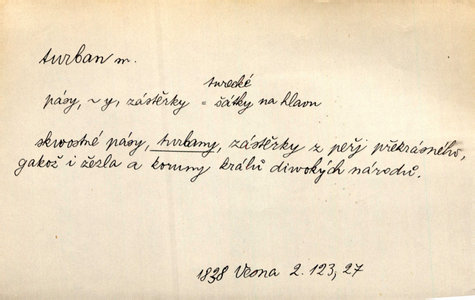 turban m.
turecké
pásy, ~ y, zástěrky = šátky na hlavu
skwostné pásy, turbany, zástěrky z peřj překrásného,
gakož i žezla a koruny králů diwokých národů.
1838 Vesna 2. 123, 27